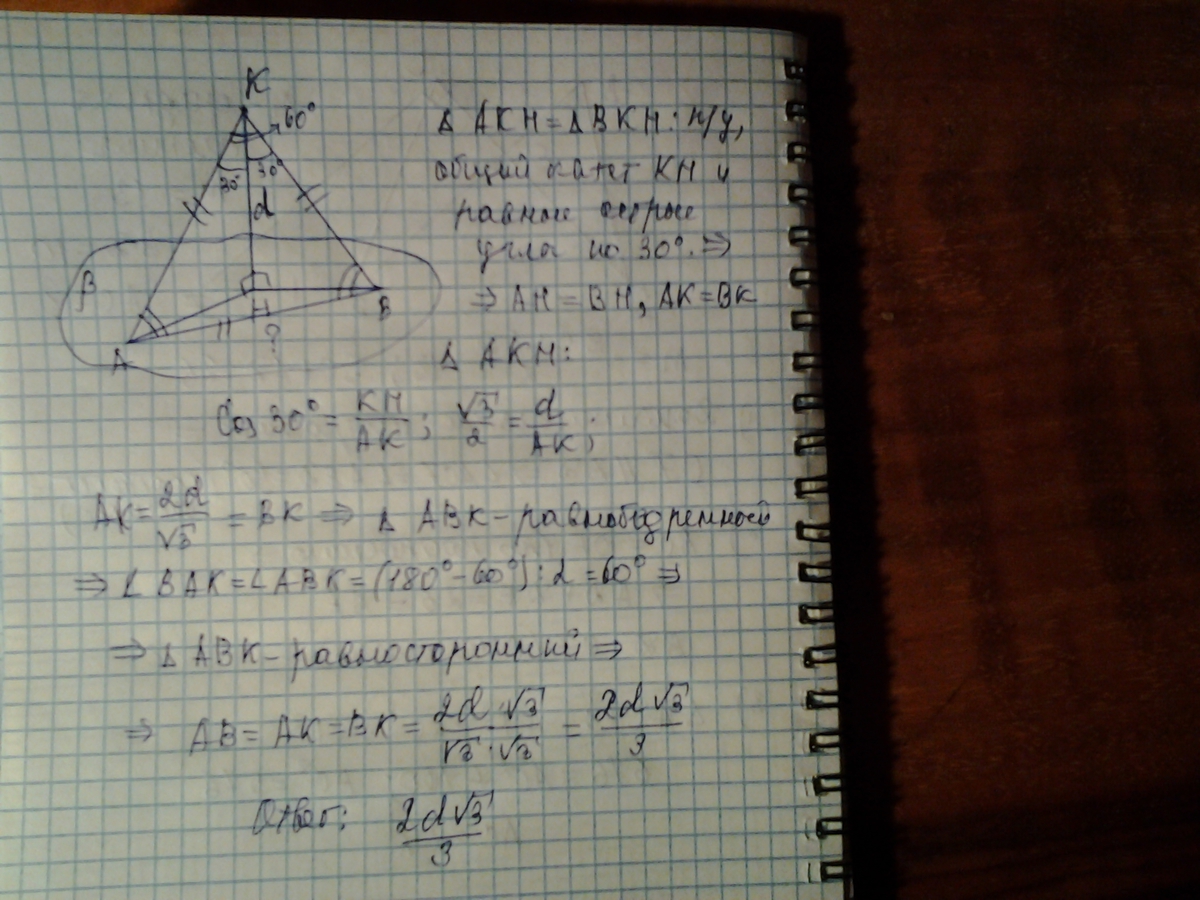 K
60°
30° 30°
d
β
H
A
B
?
Δ AKH = Δ BKH: п/у,
общий катет KH и
равные острые
углы по 30°. ⇒
⇒ AH = BH, AK = BK
Δ AKH:
Cos 30° = KH/AK; √3/2 = d/AK;
AK = 2d/√3 = BK ⇒ Δ ABK - равнобедренный
⇒ ∠ BAK = ∠ ABK = (180° - 60°) : 2 = 60° ⇒
⇒ Δ ABK - равносторонний ⇒
⇒ AB = AK = BK = 2d·√3/√3·√3 = 2d√3/3
Ответ: 2d√3/3